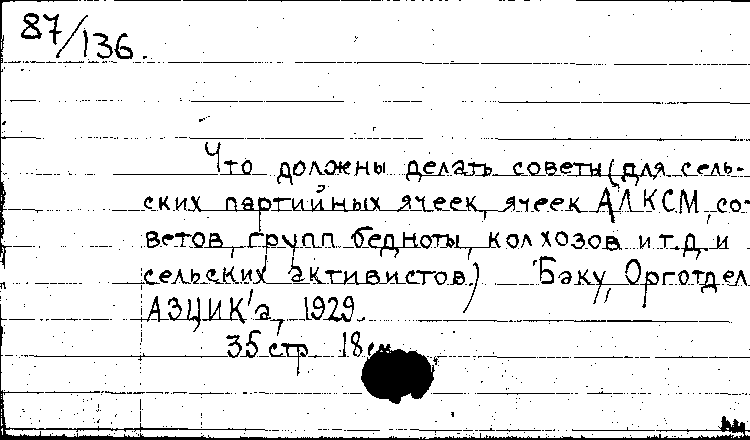 87/136.
Что должны делать советы (для сель-
ских партийных ячеек, ячеек АЛКСМ, со-
ветов, групп бедноты, колхозов и т.д. и
сельских активистов.) Баку, Орготдел
АЗЦИК'а, 1929.
35 стр. 18 см.